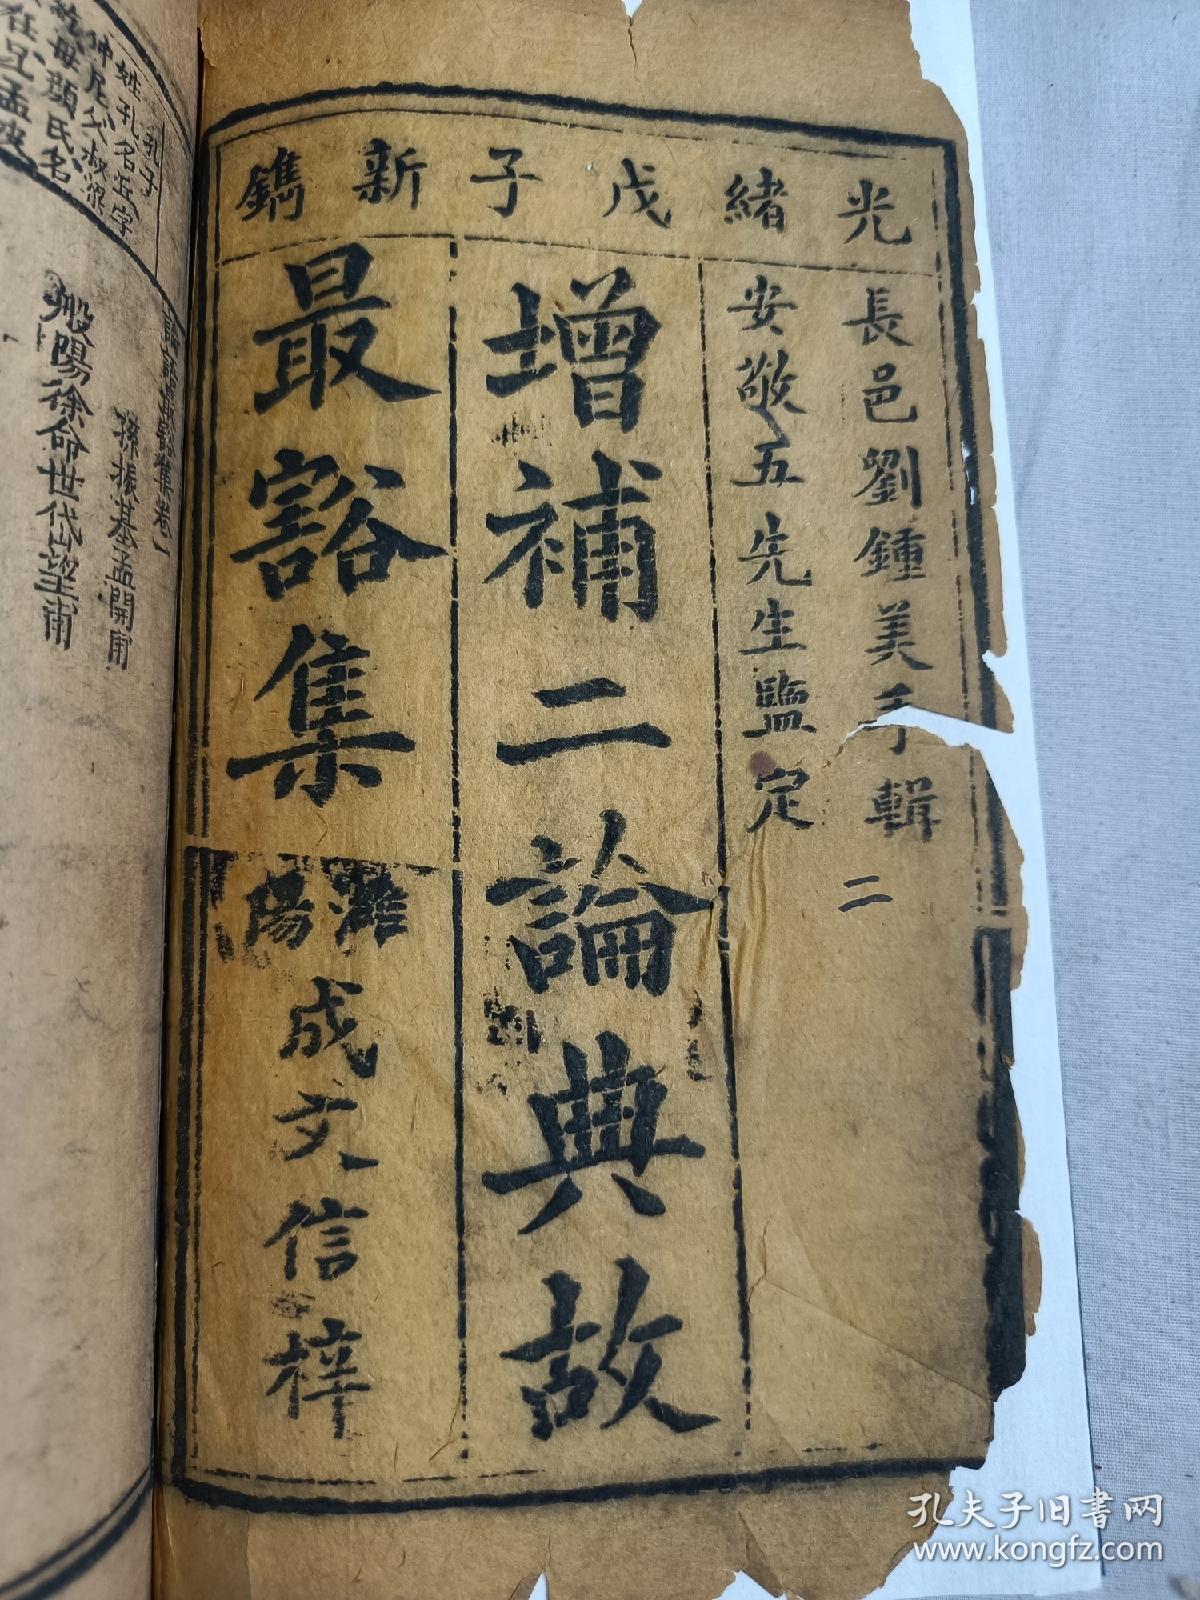 光緒戊子新鐫
長邑劉鍾美手輯
二
安敬五先生監定
增補二論典故
最豁集
濰陽
成文信梓
孔子
姓孔名丘字
仲尼父叔梁
紇母顏氏名
論語最豁集卷一
孫振基孟開甫
般陽徐命世岱望甫
孔夫子旧書网
www.kongfz.com